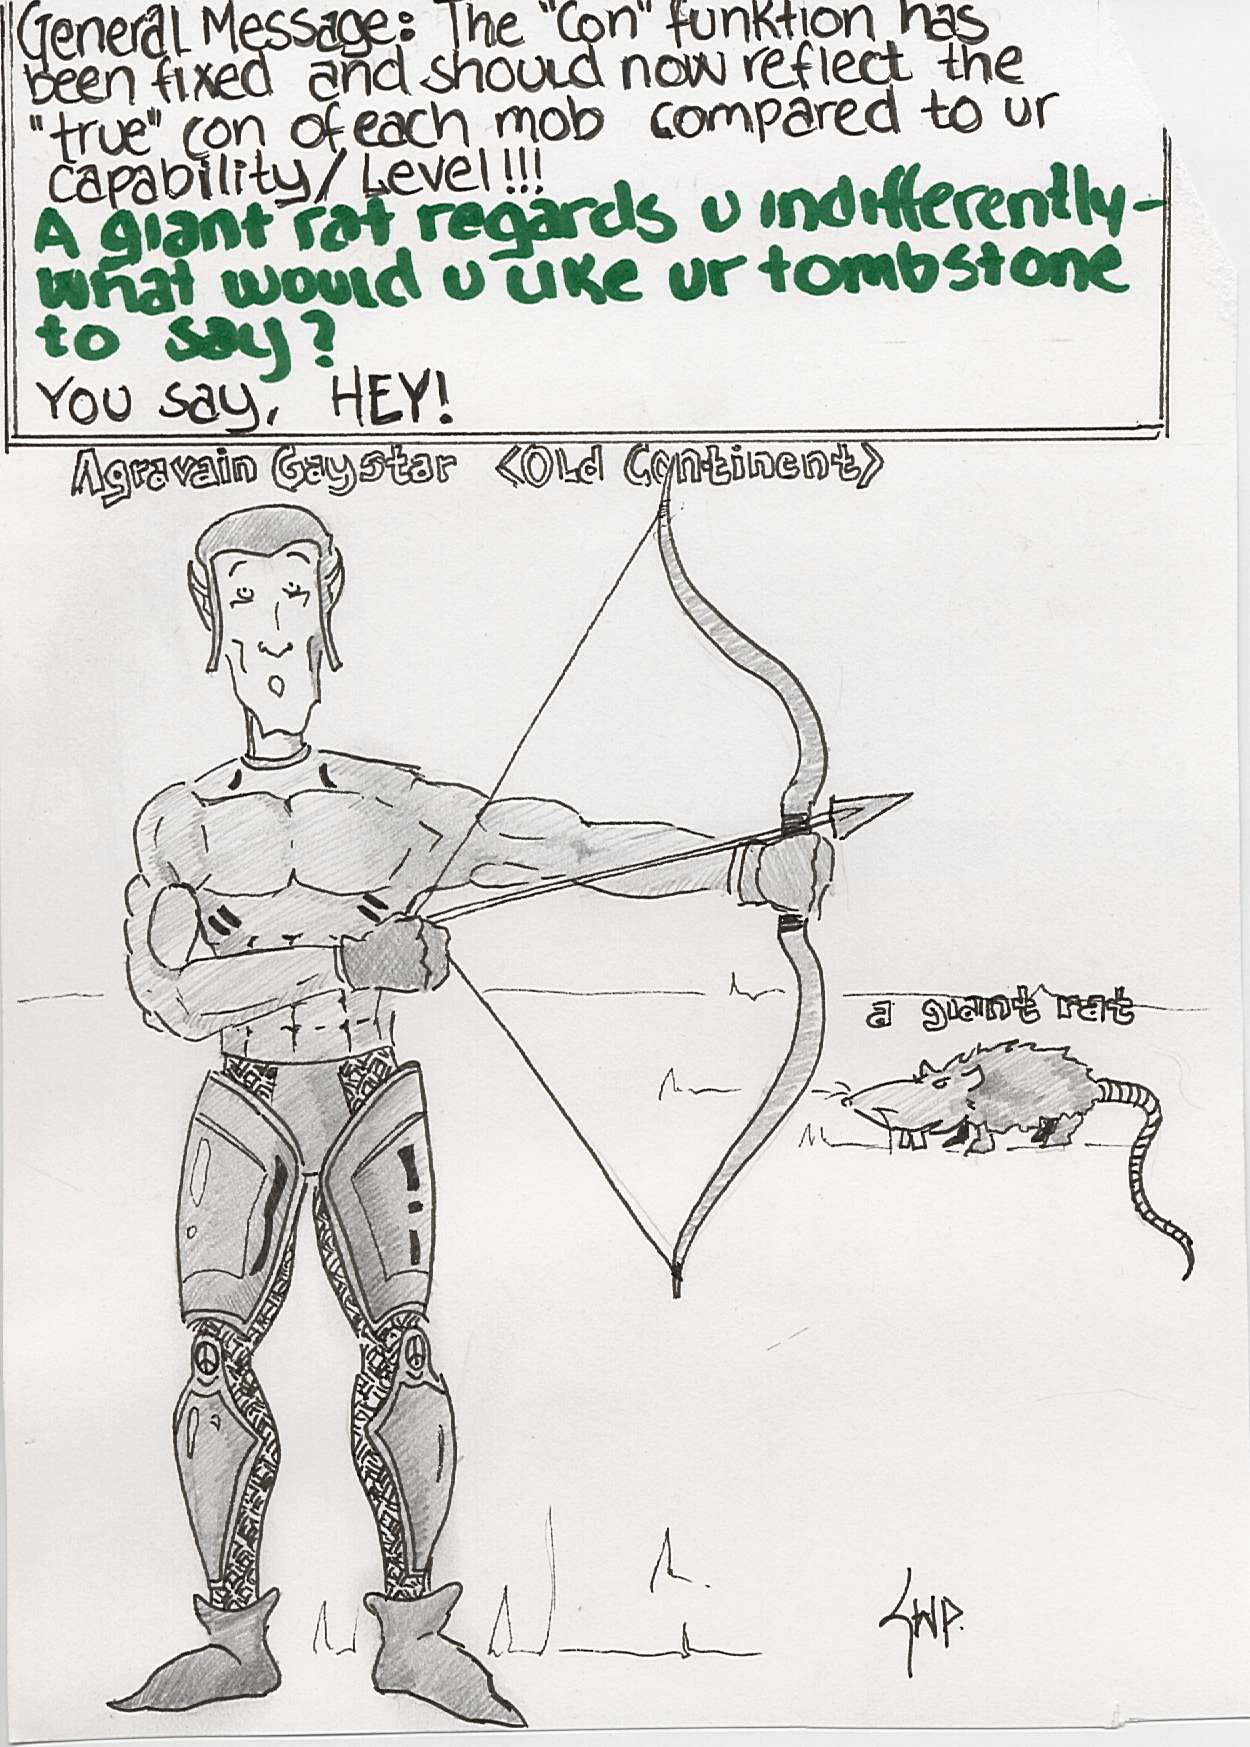 General Message: The "Con" funktion has
been fixed and should now reflect the
"true" con of each mob compared to ur
capability/Level!!!
A giant rat regards u indifferently-
what would u like ur tombstone
to say?
You say, HEY!
Agravain Gaystar <Old Continent>
a giant rat
SWP.